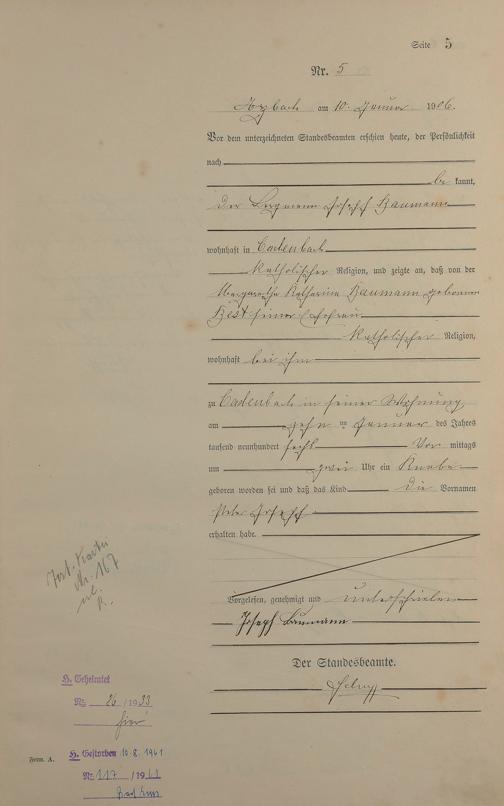 Seite 5
Nr. 5
Arzbach am 10. Januar 1906.
Vor dem unterzeichneten Standesbeamten erschien heute, der Persönlichkeit
nach
be kannt,
der Bergmann Joseph Baumann
wohnhaft in Cadenbach
katholischer Religion, und zeigte an, daß von der
Margaretha Katharina Baumann geborenen
Best seiner Ehefrau
katholischer Religion,
wohnhaft bei ihm
zu Cadenbach in seiner Wohnung
am zehn ten Januar des Jahres
tausend neunhundert sechs Vor mittags
um zwei Uhr ein Knabe
geboren worden sei und daß das Kind die Vornamen
Peter Joseph
erhalten habe.
Vorgelesen, genehmigt und unterschrieben
Joseph Baumann
Der Standesbeamte.
Test. Kartei
Nr. 167
H. Geheiratet
Nr. 26/1933
hier
Form. A.
H. Gestorben 10.8.1961
Nr. 117/1961
Bad Ems